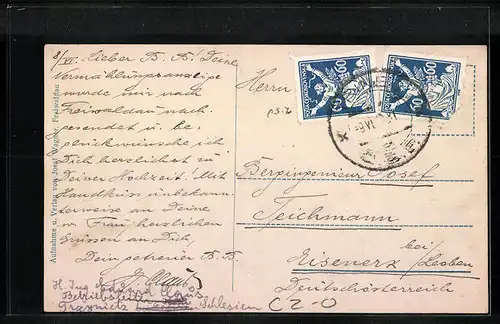 8/VI. Lieber B. B.! Deine
Vermählungsanzeige
wurde mir nach
Freiwaldau nach-
gesendet u. be-
glückwünsche ich
Dich herzlichst zu
Deiner Hochzeit! Mit
Handkuss unbekann-
terweise an Deine
w. Frau herzlichen
Grüssen an Dich,
Dein getreuer B. B.
H. Ing.
Betriebsleiter
Schlesien
Aufnahme u. Verlag von Josef Wagner, Freiwaldau
Herrn
60 60
Berginpenieur Josef
Teichmann
bei/
Eisenerz Leoben
Deutschösterreich
C2-0